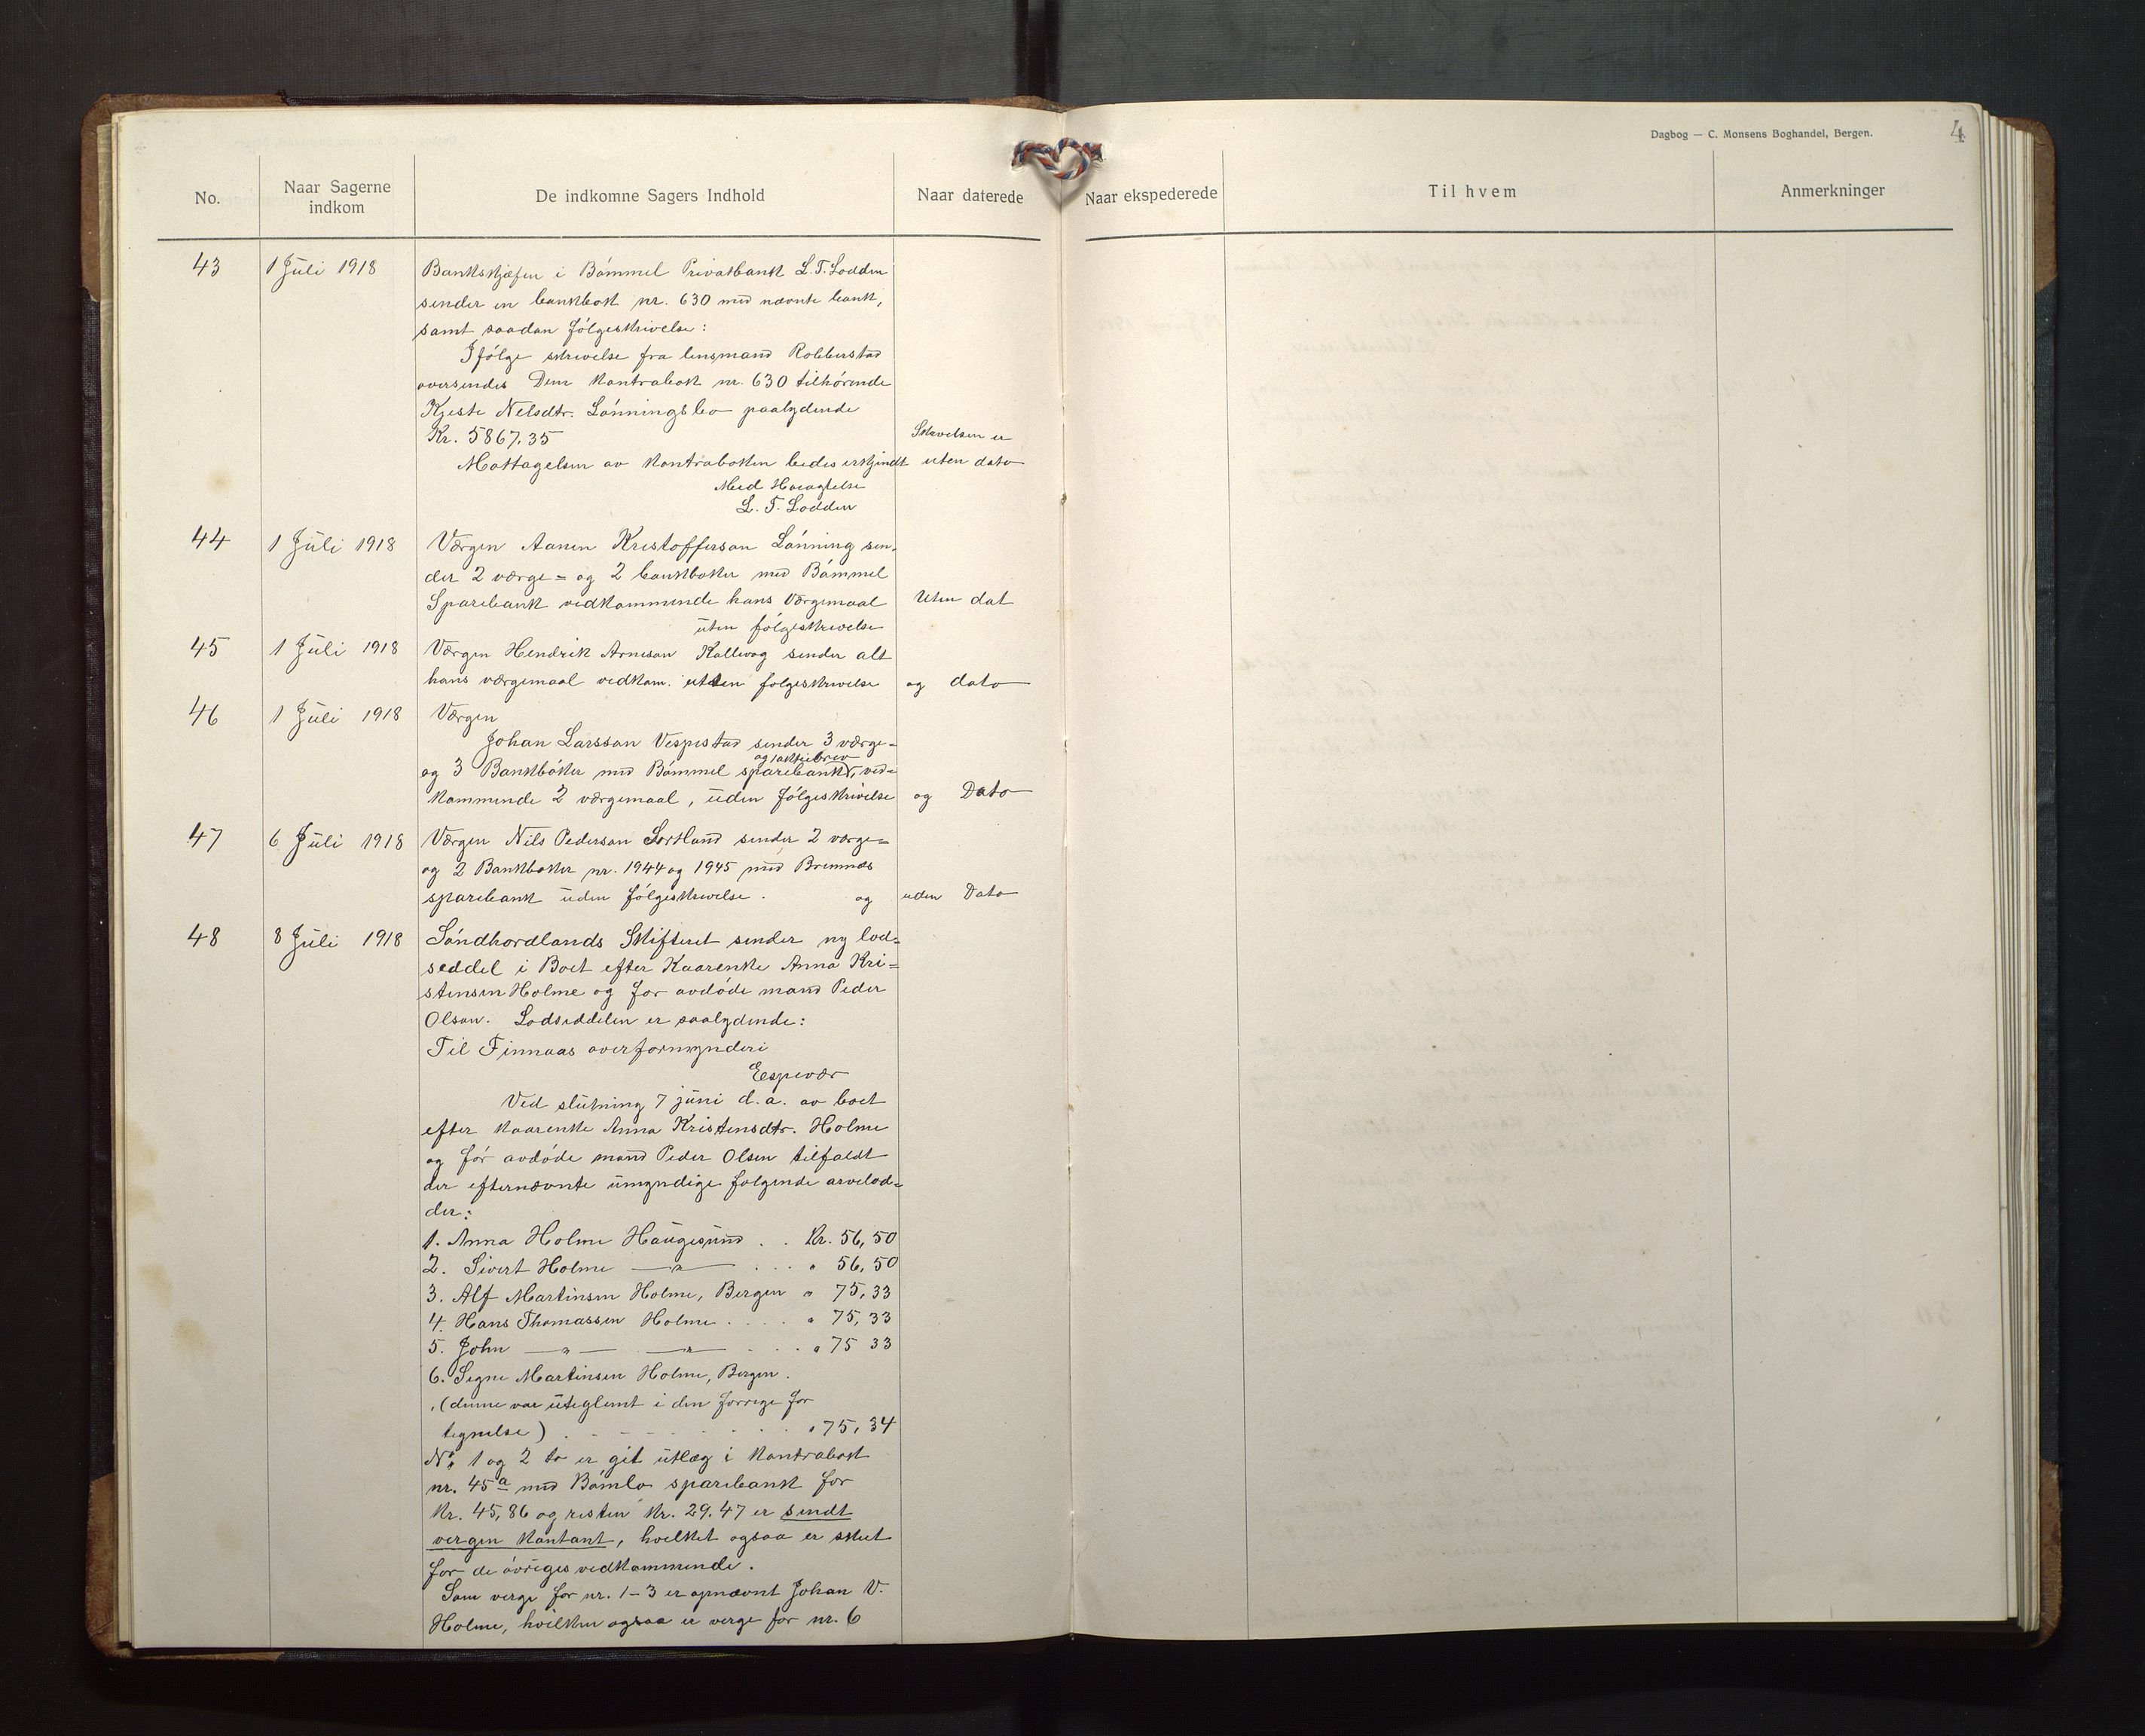 Dagbog — C. Monsens Boghandel, Bergen.
4
No.
Naar Sagerne
indkom
De indkomne Sagers Indhold
Naar daterede
Naar ekspederede
Til hvem
Anmerkninger
43 1 Juli 1918 Bankskjefen i Bømmel Privatbank L.T. Lodden
sender en bankbok nr. 630 med nævnte bank,
samt saadan følgeskrivelse:
Ifølge skrivelse fra lensmand Robberstad
oversendes Dem kontrabok nr. 630 tilhørende
Kjeste Nelsdtr. Lønningsbo paalydende
Kr. 5867.35 Skrivelsen er
Mottagelsen av kontraboken bedes erkjendt uten dato
Med Høiagtelse
L. T. Lodden
44 1 Juli 1918 Værgen Aanen Kristofferson Lønning sen-
der 2 værge= og 2 bankbøker med Bømmel
Sparebank vedkommende hans Værgemaal Uten dat
uten følgeskrivelse
45 1 Juli 1918 Værgen Hendrik Arneson Kallevog sender alt
hans værgemaal vedkom. utten følgeskrivelse og dato
46 1 Juli 1918 Værgen
Johan Larsson Vespestad sender 3 værge=
og 1 aktiebrev
og 3 Bankbøker med Bømmel sparebank, ved=
kommende 2 værgemaal, uden følgeskrivelse og Dato
47 6 Juli 1918 Værgen Nils Pederson Sortland sender 2 værge=
og 2 Bankbøker nr. 1944 og 1945 med Bremnes
sparebank uden følgeskrivelse. og uden Dato
48 8 Juli 1918 Søndhordlands Skifteret sender ny lod=
seddel i Boet efter Kaarenke Anna Kri=
stensen Holme og før avdøde mand Peder
Olson. Lodseddelen er saalydende:
Til Finnaas overformynderi
Espevær
Ved slutning 7 juni d.a. av boet
efter Kaarenke Anna Kristensdtr. Holme
og før avdøde mand Peder Olsen tilfaldt
der efternævnte umyndige følgende arvelod=
der:
1. Anna Holme Haugesund . . Kr. 56,50
2. Sivert Holme —"— . . . " 56,50
3. Alf Martinsen Holme, Bergen " 75,33
4. Hans Thomassen Holme . . . . " 75,33
5. John —"— —"— . . . " 75 33
6. Signe Martinsen Holme, Bergen.
(denne var uteglemt i den forrige for
tegnelse) . . . . . . . " 75,34
No. 1 og 2 to er git utlæg i kontrabok
nr. 45a med Bømlo sparebank for
Kr. 45,86 og resten Kr. 29.47 er sendt
vergen kontant, hvilket ogsaa er skeet
for de øvriges vedkommende.
Som verge for nr. 1–3 er opnævnt Johan V.
Holme, hvilken ogsaa er verge for nr. 6